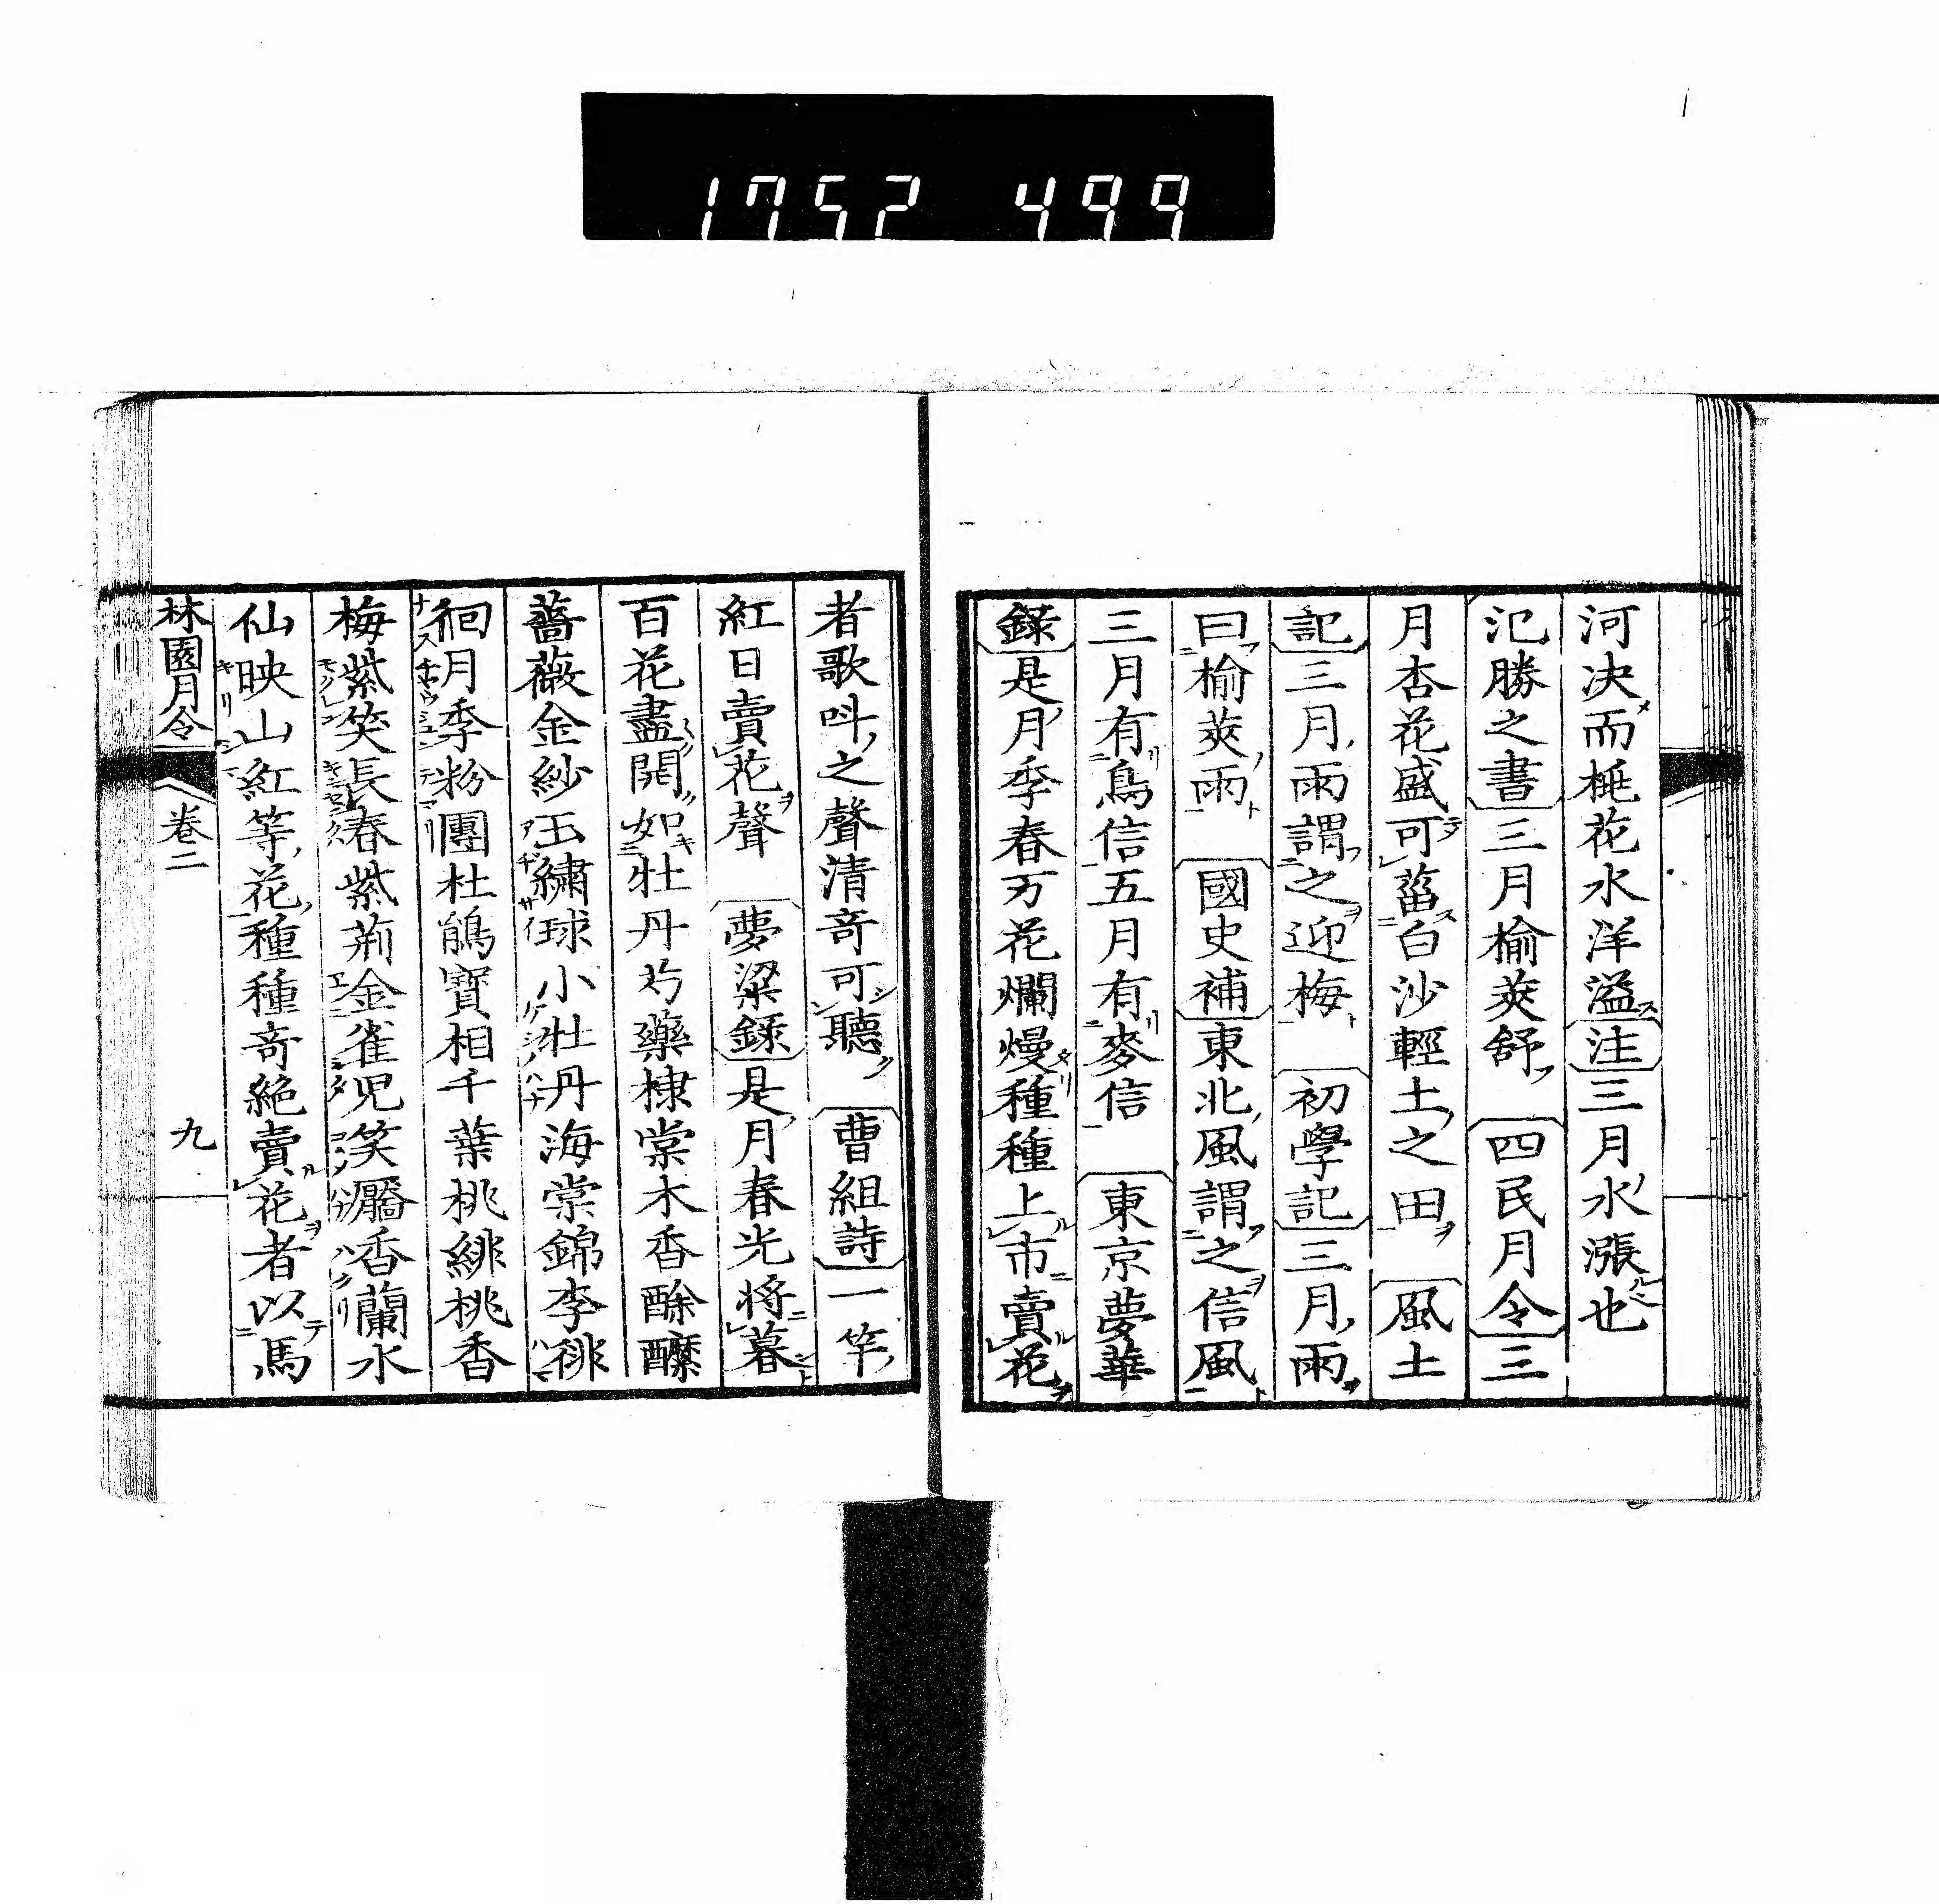 1752 499
河决而桃花水洋溢注三月水漲也
氾勝之書三月榆莢舒 四民月令三
月杏花盛可菑白沙輕土之田 風土
記三月雨謂之迎梅 初學記三月雨
曰榆莢雨 國史補東北風謂之信風
三月有鳥信五月有麥信 東京夢華
錄是月季春万花爛熳種種上市賣花
者歌呌之聲清奇可聽 曹組詩一竿
紅日賣花聲 夢梁錄是月春光将暮
百花盡開如牡丹芍藥棣棠木香酴醾
薔薇金紗玉繡球小牡丹海棠錦李徘
徊月季粉團杜鵑寶相千葉桃緋桃香
梅紫笑長春紫荊金雀児笑靨香蘭水
仙映山紅等花種種奇絶賣花者以馬
林園月令 卷二 九